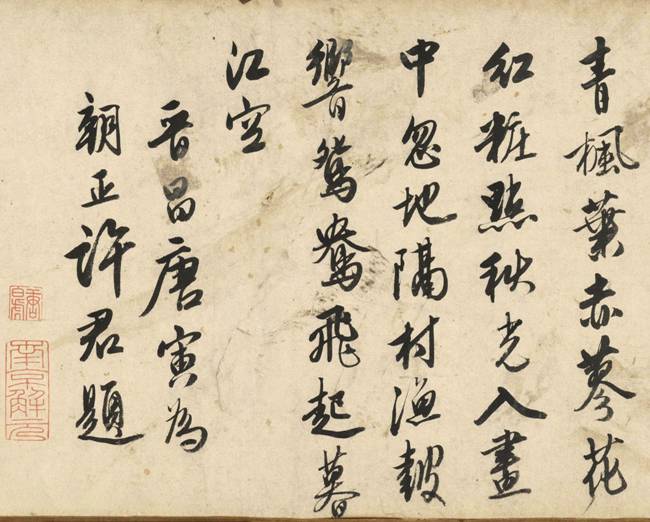 青楓葉赤蓼花
紅粧點秋光入畫
中忽地隔村漁皷
響鴛鴦飛起暮
江空
晉昌唐寅為
朝正許君題
唐白虎
南京解元